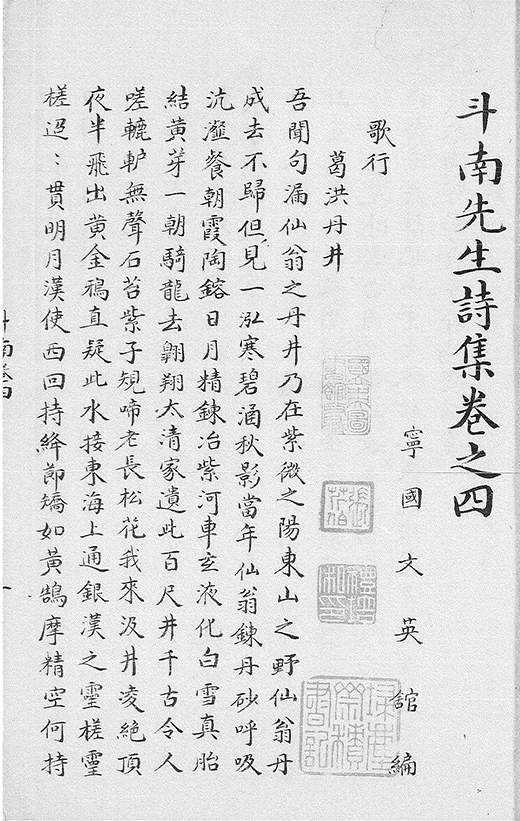 斗南先生詩集卷之四
寧國文英館編
歌行
葛洪丹井
吾聞句漏仙翁之丹井乃在紫微之陽東山之野仙翁丹
成去不歸但見一泓寒碧涵秋影當年仙翁鍊丹砂呼吸
沆瀣餐朝霞陶鎔日月精鍊冶紫河車玄液化白雪真胎
結黃芽一朝騎龍去翱翔太清家遺此百尺井千古令人
嗟轆轤無聲石苔紫子規啼老長松花我來汲井凌絕頂
夜半飛出黃金鴉直疑此水接東海上通銀漢之靈槎靈
槎迢〻貫明月漢使西回持絳節矯如黃鵠摩精空何持